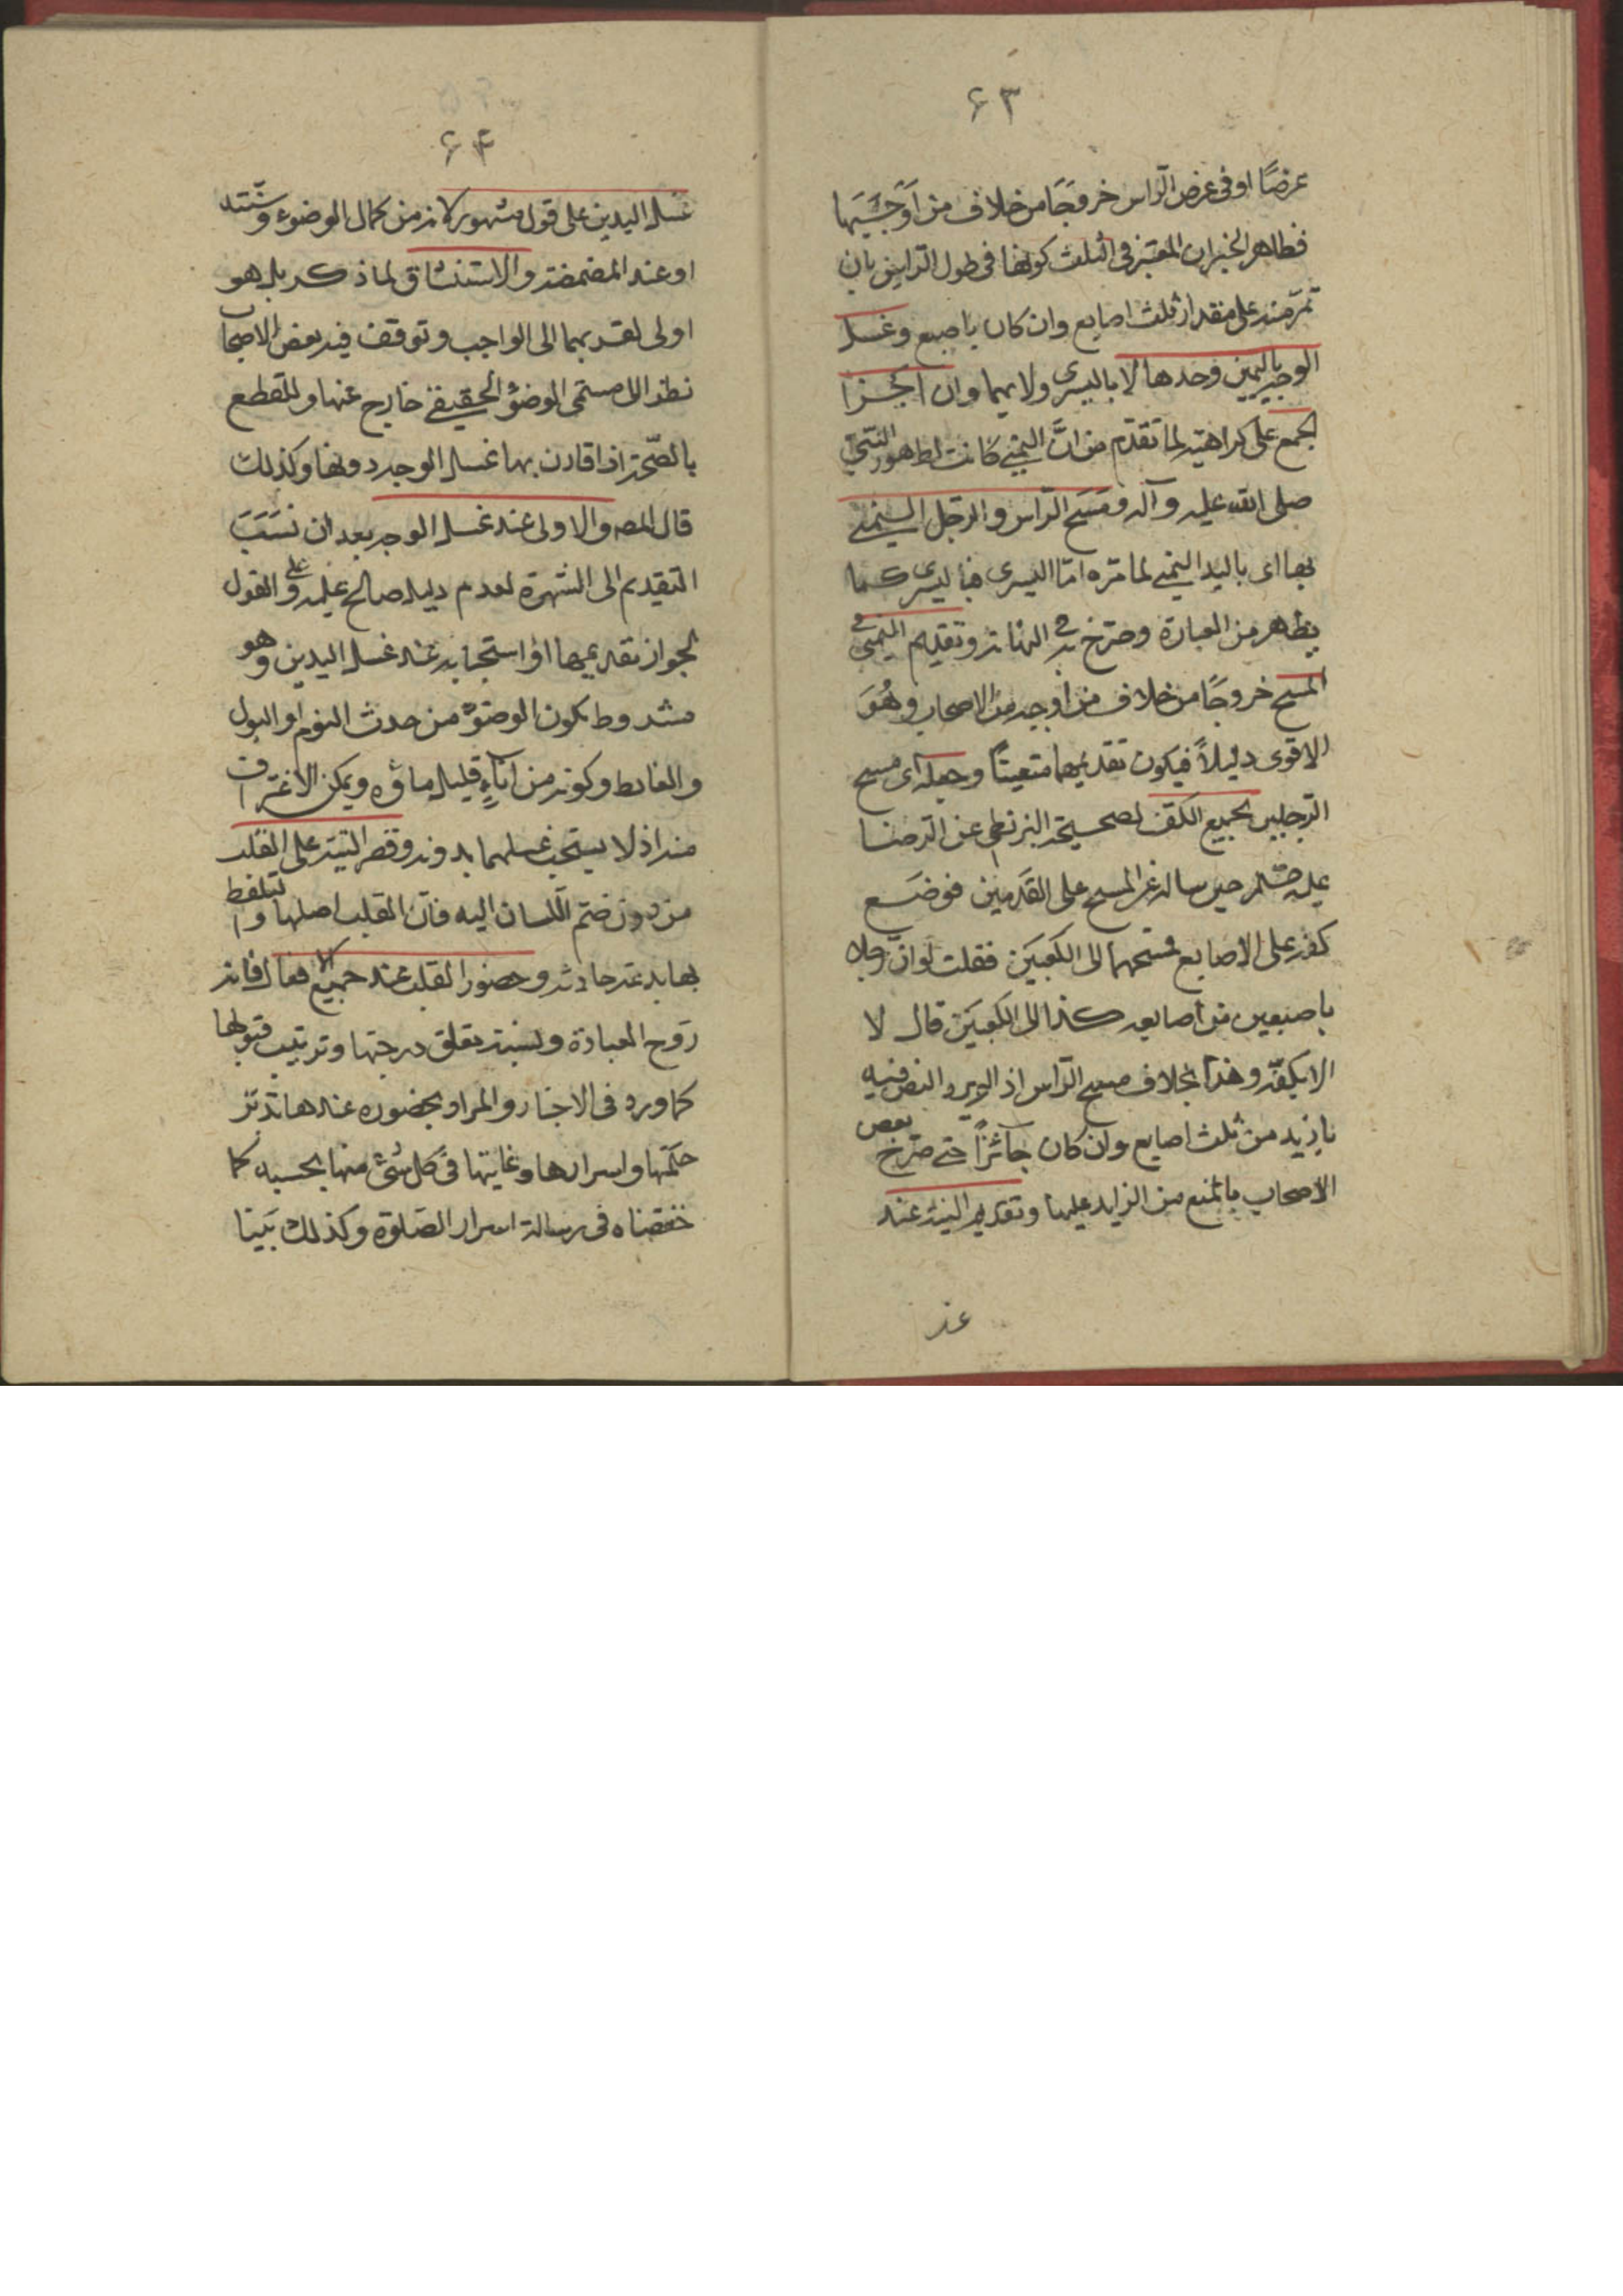 ۶۳
عرضًا او فی عرض الراس خروجًا من خلاف من اوجبها
فظاهر الخبران المعتبر فی الثلث کونها فی طول الراس بان
تمرّ منه علی مقدار ثلث اصابع وان کان باصبع وغسل
الوجه بالیمین وحدها لا بالیسری ولا بهما وان اجزا
الجمع علی کراهته لما تقدّم من انّ الیمنی کانت لطهور النبی
صلی الله علیه وآله ومسح الراس والرجل الیمنی
بها ای بالید الیمنی لما مرّ امّا الیسری فبالیسری کما
یظهر من العبارة وصرّح به فی وتقدیم الیمنی فی
المسح خروجًا من خلاف من اوجبه من الاصحاب وهُوَ
الاقوی دلیلاً فیکون تقدیمها متعینًا وجعله ای مسح
الرجلین بجمیع الکف لصحیحة البزنطی عن الرضا
علیه السلم حین ساله عن المسح علی القدمین فوضع
کفه علی الاصابع فمسحهما الی الکعبین فقلت لو انّ رجلا
باصبعین من اصابعه کذا الی الکعبین قال لا
الا بکفّه وهذا بخلاف مسح الراس اذ لم یرد النص فیه
بازید من ثلث اصابع وان کان جائزًا حتی صرّح بعض
الاصحاب بالمنع من الزاید علیها وتقدیم النیة عند
عند
۶۴
غسل الیدین علی قول مشهور لانه من کمال الوضوء وسننه
او عند المضمضة والاستنشاق لما ذکر بل هو
اولی لقربهما الی الواجب وتوقف فیه بعض الاصحاب
نظرا الی ان مسمّی الوضوء الحقیقی خارج عنها وللقطع
بالصّحة اذا قارن بها غسل الوجه دونها وکذلک
قال المصه والاولی عند غسل الوجه بعد ان نسَبَ
التقدیم الی الشهرة لعدم دلیل صالح علیه و علی القول
بجواز تقدیمها او استحبابه عند غسل الیدین وهو
مشروط بکون الوضوء من حدث النوم او البول
والغایط وکونه من اناءٍ قلیل ماؤه ویمکن الاغتراف
منه اذ لا یستحب غسلهما بدونه وقصر النیة علی القلب
من دون ضمّ اللسان الیه فانّ القلب اصلها والتلفظ
بها بدعة حادثة وحضور القلب عند جمیع الافعال فانه
رَوح العبادة وبسببه یتعلق درجتها وترتیب قبولها
کما ورد فی الاخبار والمراد بحضوره عندها تدبّر
حکمها واسرارها وغایتها فی کل شئ منها بحسبه کما
حققناه فی رسالة اسرار الصّلوة وکذلک بَیّنا